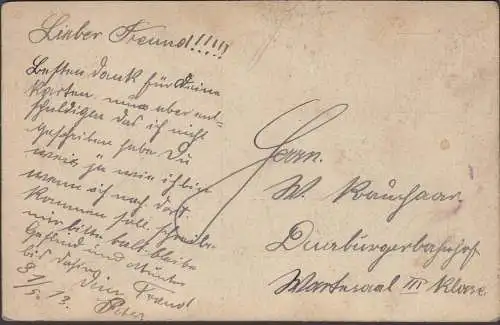 Lieber Freund!!!!!
Besten Dank für Deine
Karten, nun aber ent-
schuldigen das ich nicht
Geschriben habe. Du
weis ja wie ich
wann ich nach dort
kommen soll. schreibe
mir bitte bald bleibe
Gesund und Munter
bis dahin Dein Freund
8/5. 13. Peter
Herrn.
W.
Duisburgerbahnhof
Wartesaal III Klasse